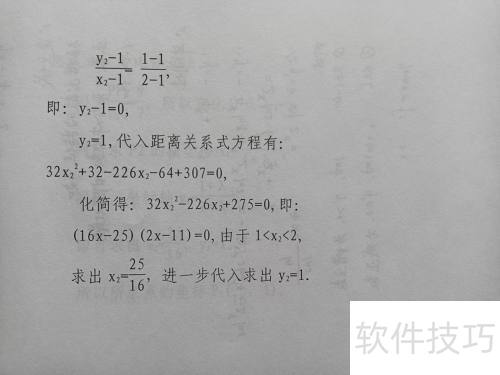 y₂-1/x₂-1 = 1-1/2-1,
即: y₂-1=0,
y₂=1,代入距离关系式方程有:
32x₂²+32-226x₂-64+307=0,
化简得: 32x₂²-226x₂+275=0,即:
(16x-25)(2x-11)=0,由于1<x₂<2,
求出x₂=25/16, 进一步代入求出y₂=1.
软件技巧